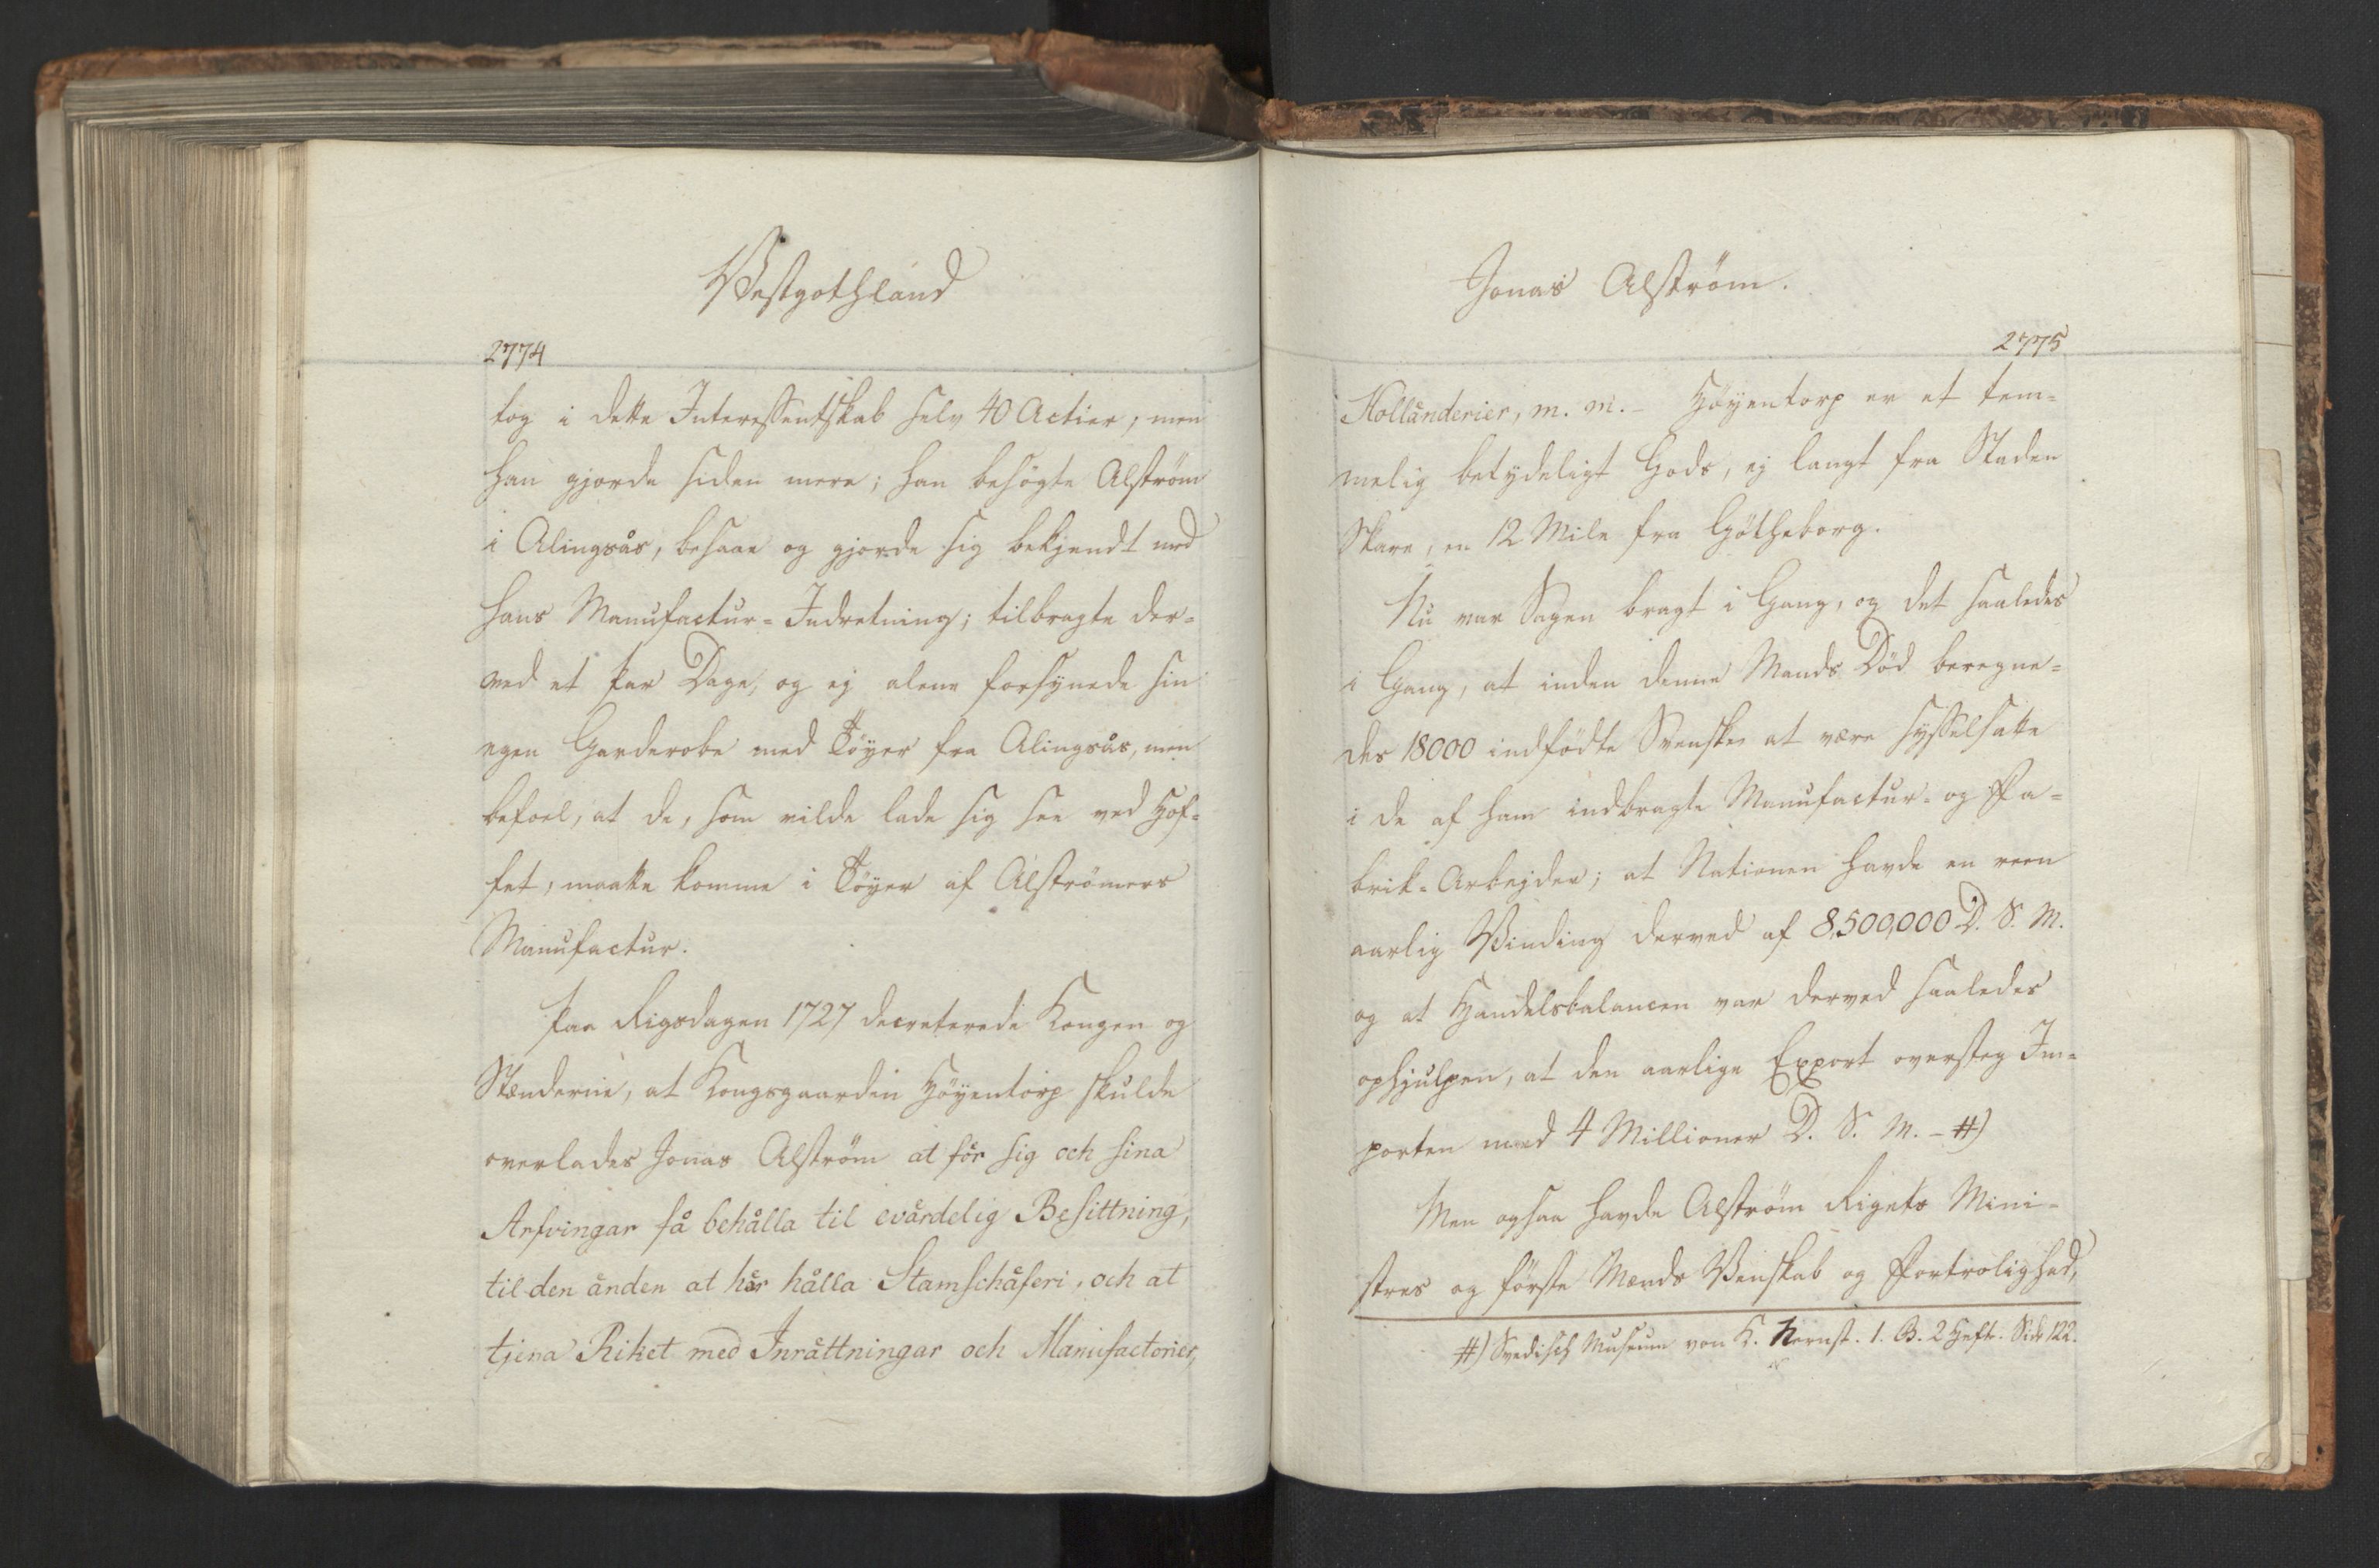 Vestgothland
2774
tog i dette Interessentskab selv 40 Actier, men
han gjorde siden mere; han besögte Alström
i Alingsås, besaae og gjorde sig bekjendt med
hans Manufactur-Indretning; tilbragte der-
ved et Par Dage, og ej alene forsynede sin
egen Garderobe med Töyer fra Alingsås, men
befoel, at de, som vilde lade sig see ved Hof-
fet, maatte komme i Töyer af Alströmers
Manufactur.
Paa Rigsdagen 1727 decreterede Kongen og
Stænderne, at Kongsgaarden Höyentorp skulde
overlades Jonas Alström at för sig och sina
Arfvingar få behålla til evärdelig Besittning,
til den änden at här hålla Stamschäferi, och at
tjena Riket med Inrättningar och Manufactorier,
Jonas Alström.
2775
Holländerier, m. m. - Höyentorp er et tem-
melig betydeligt Gods, ej langt fra Staden
Skara, en 12 Mile fra Götheborg.
Nu var Sagen bragt i Gang, og det saaledes
i Gang, at inden denne Mands Död beregne-
des 18000 indfödte Svenske at være sysselsatte
i de af ham indbragte Manufactur- og Fa-
brik-Arbejder; at Nationen havde en reen
aarlig Vinding derved af 8,500,000 D. S. M.
og at Handelsbalancen var derved saaledes
ophjulpen, at den aarlige Export oversteg Im-
porten med 4 Millioner D. S. M. - #)
Men ogsaa havde Alström Rigets Mini-
stres og förste Mænds Venskab og Fortrolighed,
#) Svedisch Museum von K. Nernst. 1. B. 2 Heft. Side 122.